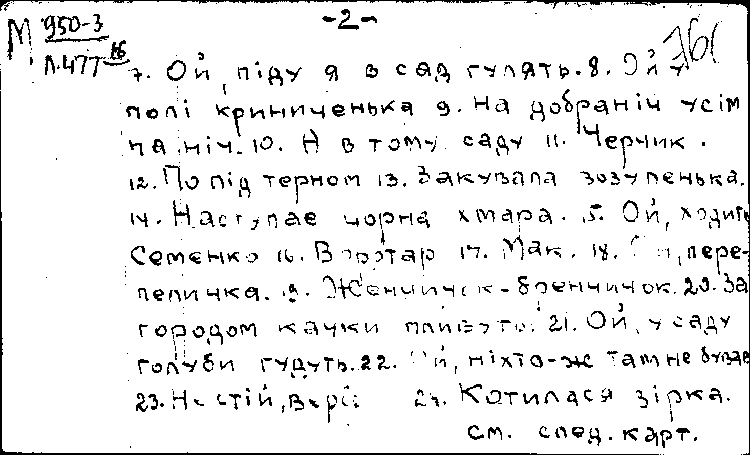 М 950-3 -2-
Л.477 16 761
7. Ой, піду я в сад гулять. 8. Ой у
полі криниченька 9. На добраніч усім
на ніч. 10. А в тому саду 11. Черчик.
12. По під терном 13. Закувала зозуленька.
14. Наступає чорна хмара. 15. Ой, ходить
Семенко 16. Воротар 17. Мак. 18. Ой, пере-
пеличка. 19. Женчичок-бренчичок. 20. За
городом качки пливуть. 21. Ой, у саду
голуби гудуть. 22. Ой, ніхто-ж там не буває
23. Не стій, 24. Котилася зірка.
см. след. карт.